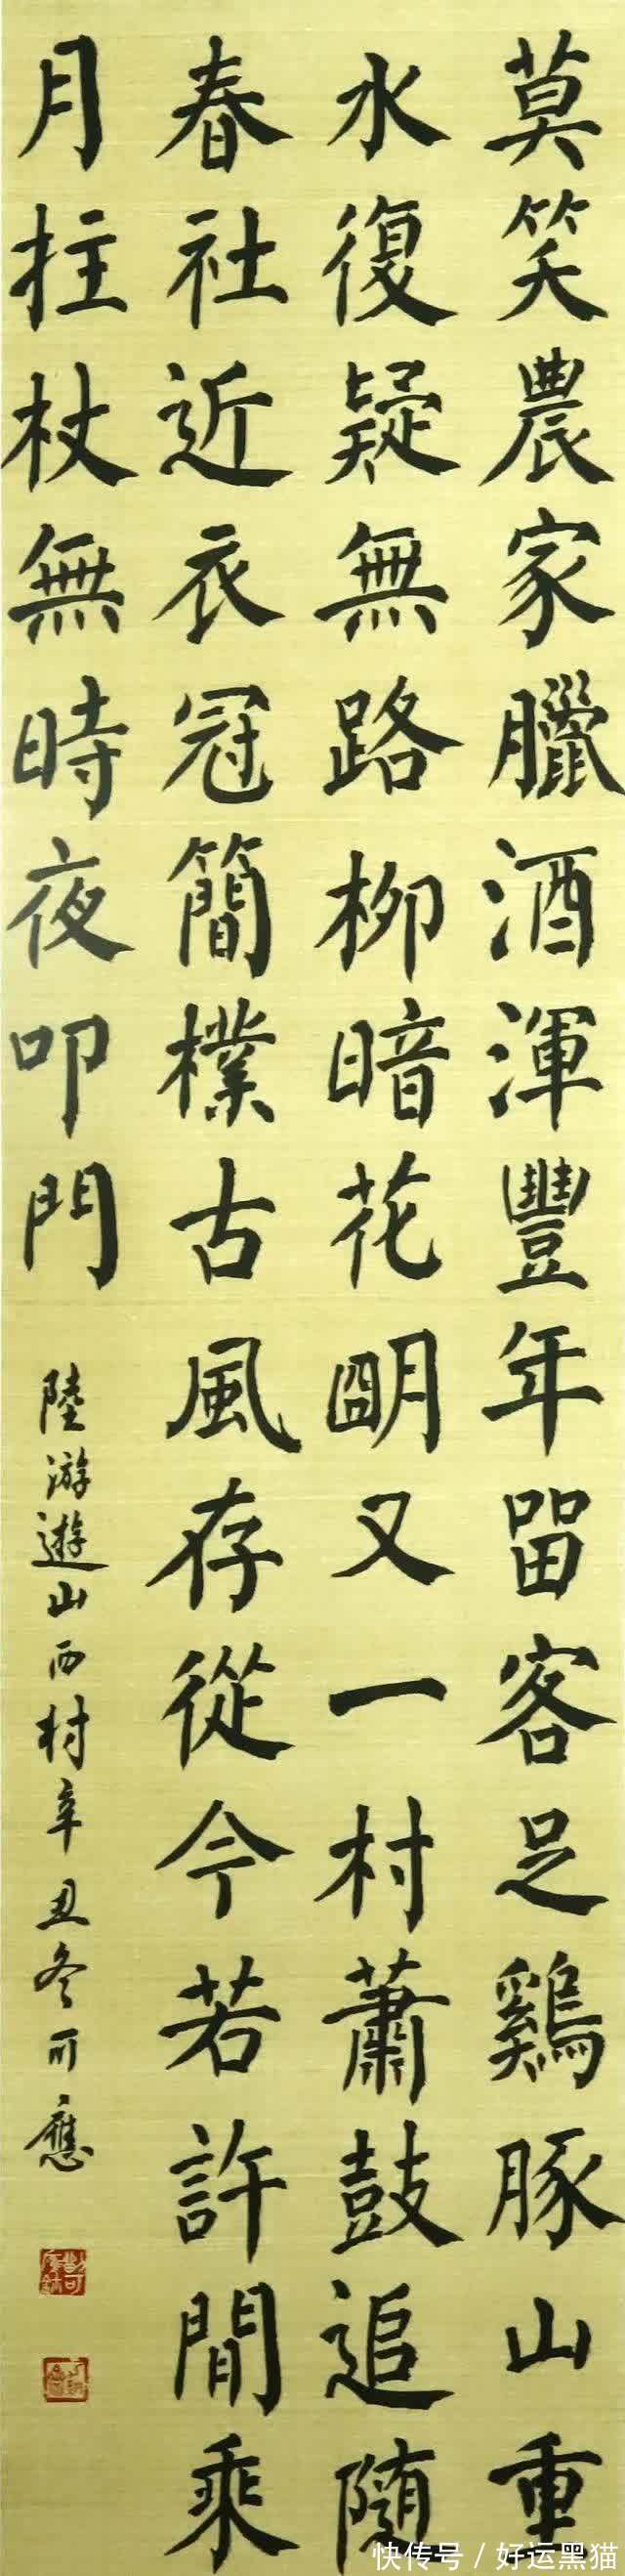 莫笑農家臘酒渾豐年留客足鷄豚山重
水復疑無路柳暗花朙又一村蕭鼓追隨
春社近衣冠簡樸古風存從今若許閒乘
月拄杖無時夜叩門
陸游遊山西村辛丑冬可應
快传号/好运黑猫